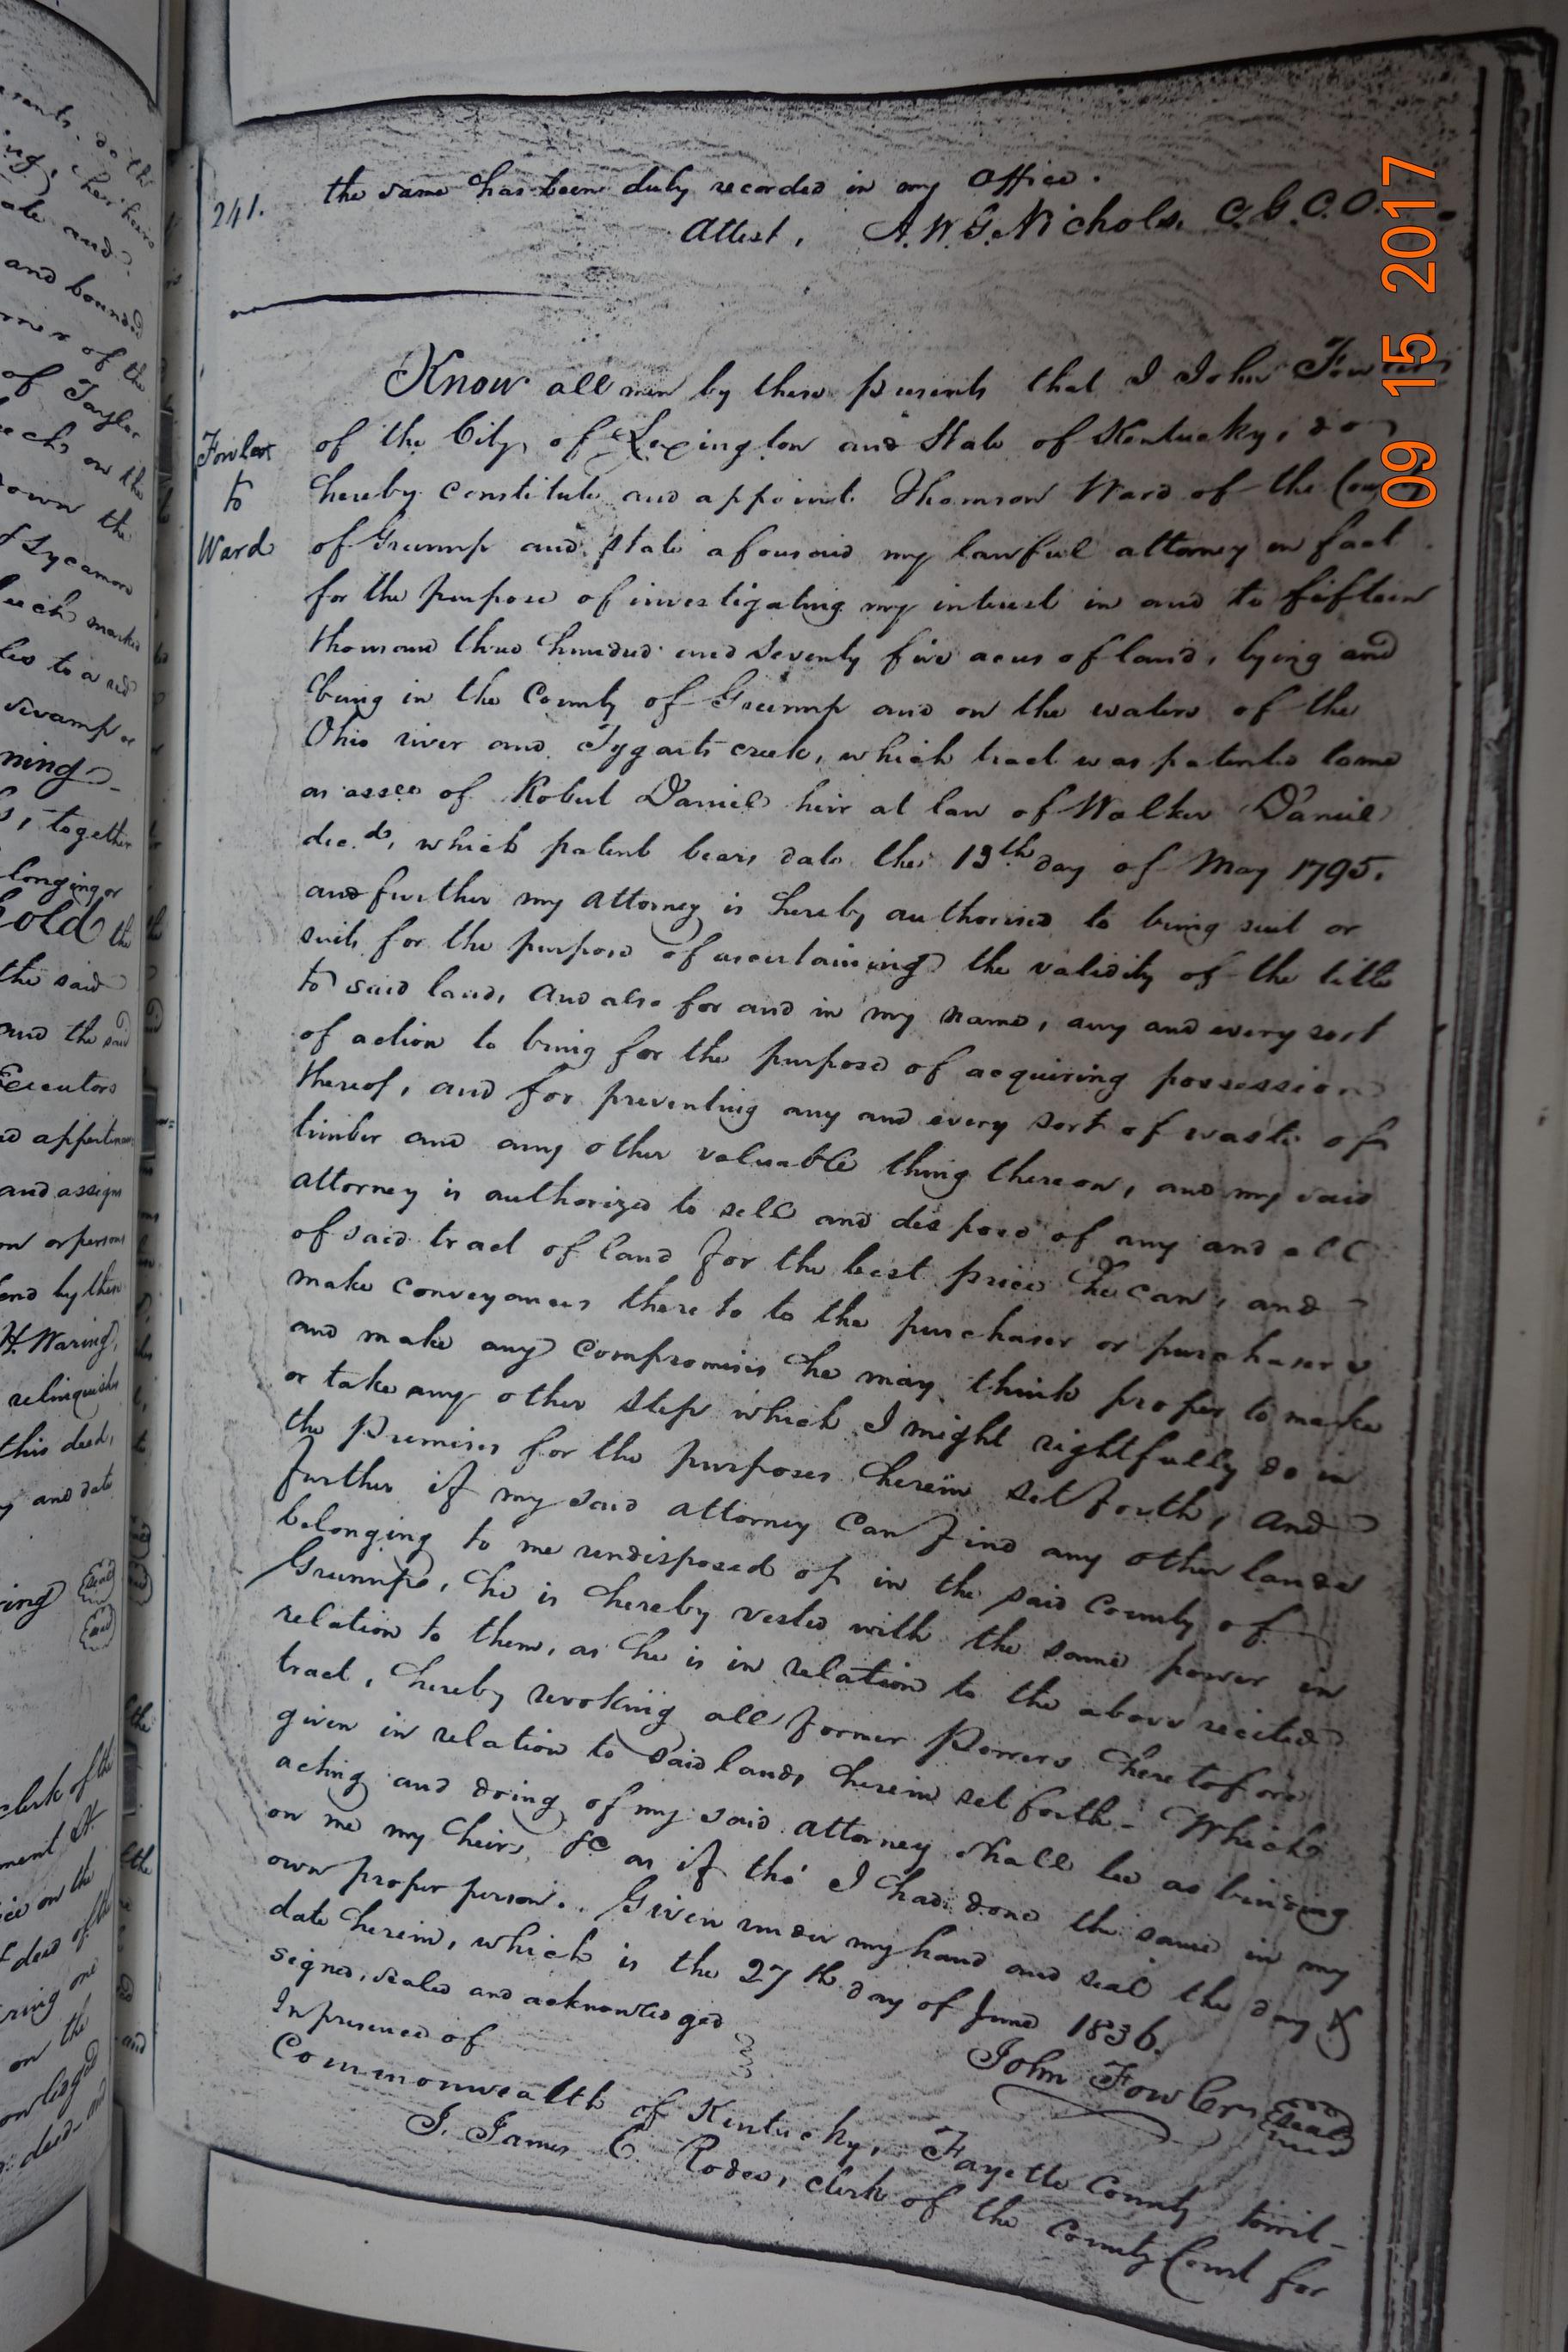 241.
the same has been duly recorded in my Office.
Attest, A. W. G. Nichols, C. G. C. C.
Fowler
to
Ward
Know all men by these presents that I John Fowler
of the City of Lexington and State of Kentucky, do
hereby constitute and appoint Thomson Ward of the County
of Greenup and State aforesaid my lawful attorney in fact
for the purpose of investigating my interest in and to fifteen
thousand three hundred and seventy five acres of land, lying and
being in the County of Greenup and on the waters of the
Ohio river and Tygarts creek, which tract was patented to me
as assee of Robert Daniel heir at law of Walker Daniel
dec.d, which patent bears date the 13th day of May 1795.
and further my attorney is hereby authorised to bring suit or
suits for the purpose of ascertaining the validity of the title
to said land, and also for and in my name, any and every sort
of action to bring for the purpose of acquiring possession
thereof, and for preventing any and every sort of waste of
timber and any other valuable thing thereon, and my said
attorney is authorized to sell and dispose of any and all
of said tract of land for the best price he can, and
make conveyances thereto to the purchaser or purchasers
and make any compromises he may think proper to make
or take any other step which I might rightfully do in
the premises for the purposes herein set forth, and
further if my said attorney can find any other lands
belonging to me undisposed of in the said County of
Greenup, he is hereby vested with the same power in
relation to them, as he is in relation to the above recited
tract, hereby revoking all former Powers heretofore
given in relation to said lands herein set forth - Which
acting and doing of my said attorney shall be as binding
on me my heirs, &c as if tho' I had done the same in my
own proper person. Given under my hand and seal the day &
date herein, which is the 27th day of June 1836.
signed, sealed and acknowledged
In presence of
John Fowler seal
Commonwealth of Kentucky, Fayette County towit-
I. James C. Rodes, clerk of the County Court for
09 15 2017
and bounded
of the
of Taylor
on the
own the
Sycamore
marked
to a red
swamp
together
longing or
hold the
the said
and the said
Executors
and assigns
or persons
and by them
H. Waring,
relinquishes
this deed,
and date
seal
seal
clerk of the
on the
deed of the
on the